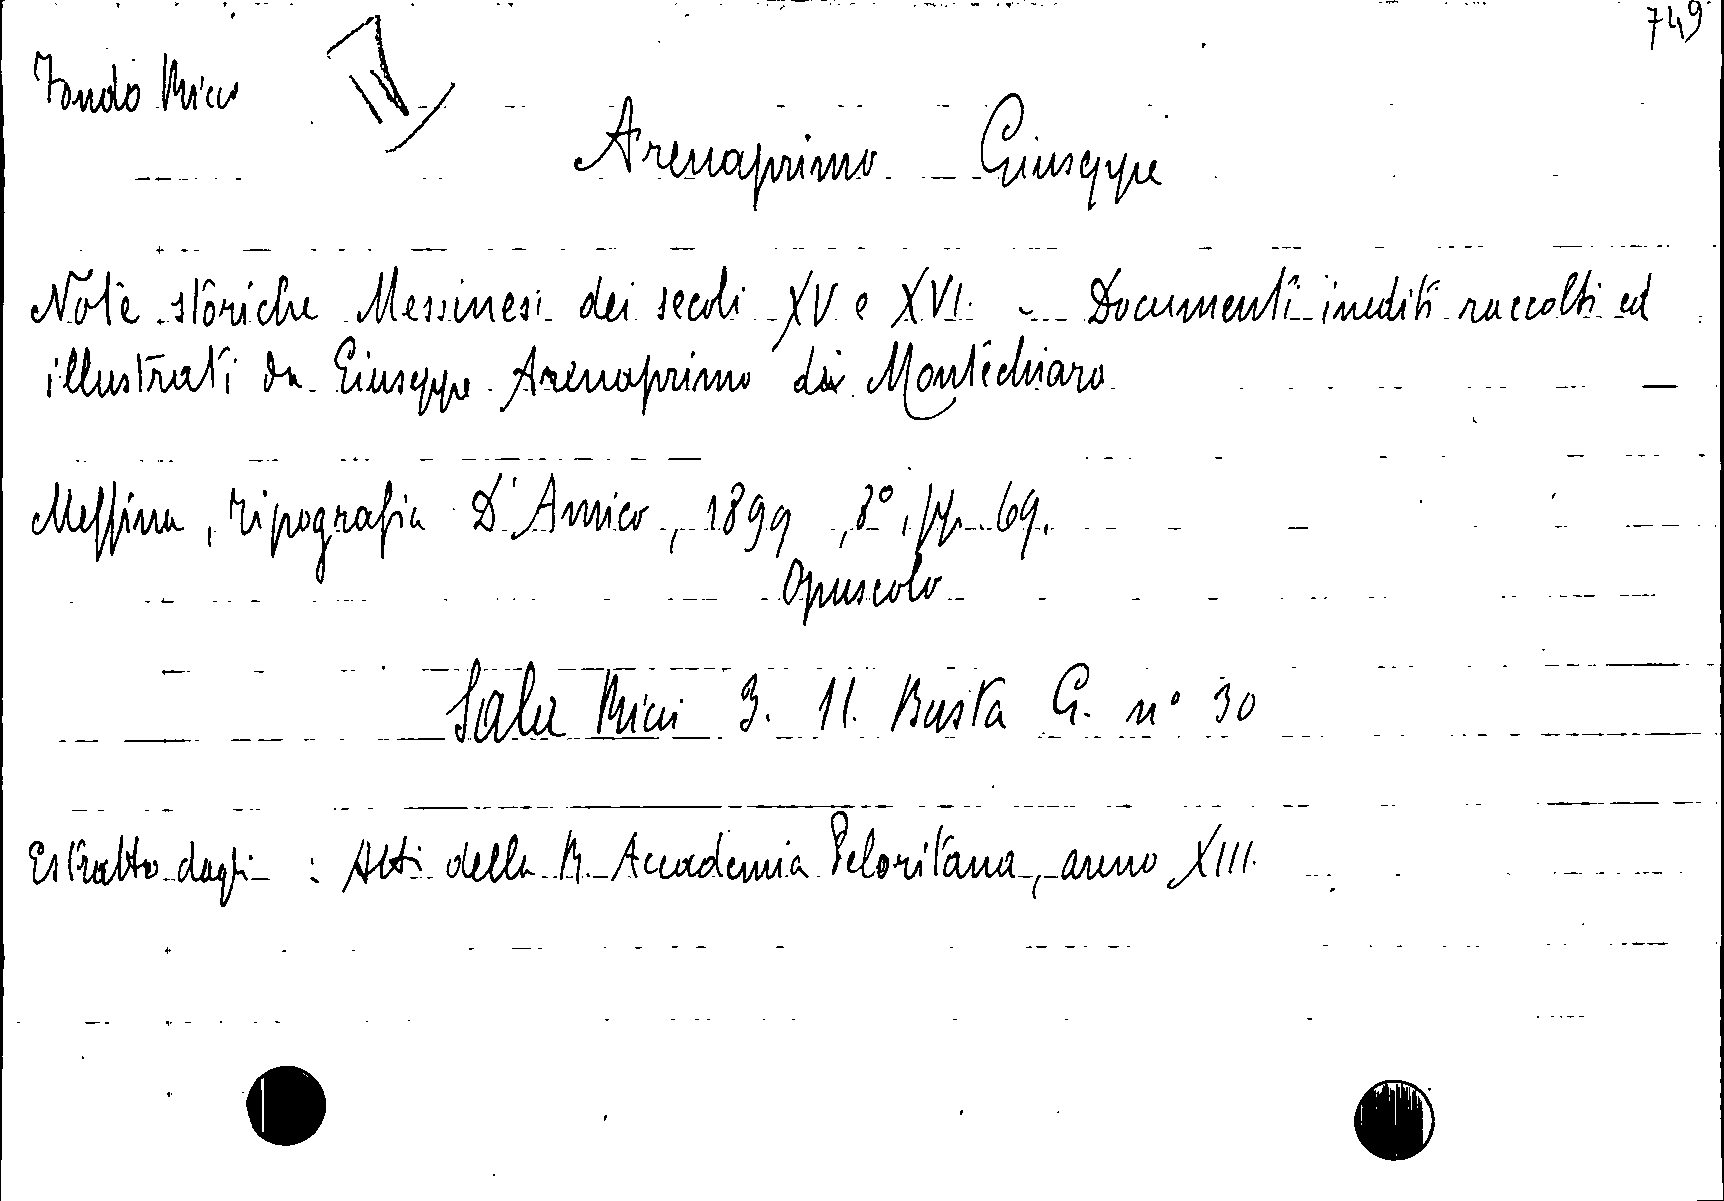 749
Fondo Ricci
IV
Arenaprimo Giuseppe
Note storiche Messinesi dei secoli XV e XVI. - Documenti inediti raccolti ed
illustrati da Giuseppe Arenaprimo di Montechiaro
Messina, Tipografia D'Amico, 1899, 8°, pp. 69.
Opuscolo
Sala Ricci 3. 11. Busta G. n° 30
Estratto dagli : Atti della R. Accademia Peloritana, anno XIII.